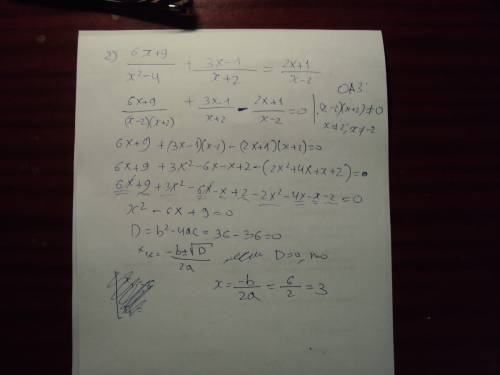 2) (6x+9)/(x²-4) + (3x-1)/(x+2) = (2x+1)/(x-2)
ОДЗ:
(6x+9)/((x-2)(x+2)) + (3x-1)/(x+2) - (2x+1)/(x-2) = 0 | (x-2)(x+2)≠0
x≠2; x≠-2
6x+9 + (3x-1)(x-2) - (2x+1)(x+2)=0
6x+9 + 3x²-6x-x+2-(2x²+4x+x+2)=0
6x+9+3x²-6x-x+2-2x²-4x-x-2=0
x²-6x+9=0
D=b²-4ac=36-36=0
x₁,₂=(-b±√D)/2a, если D=0, то
x=-b/2a=6/2=3